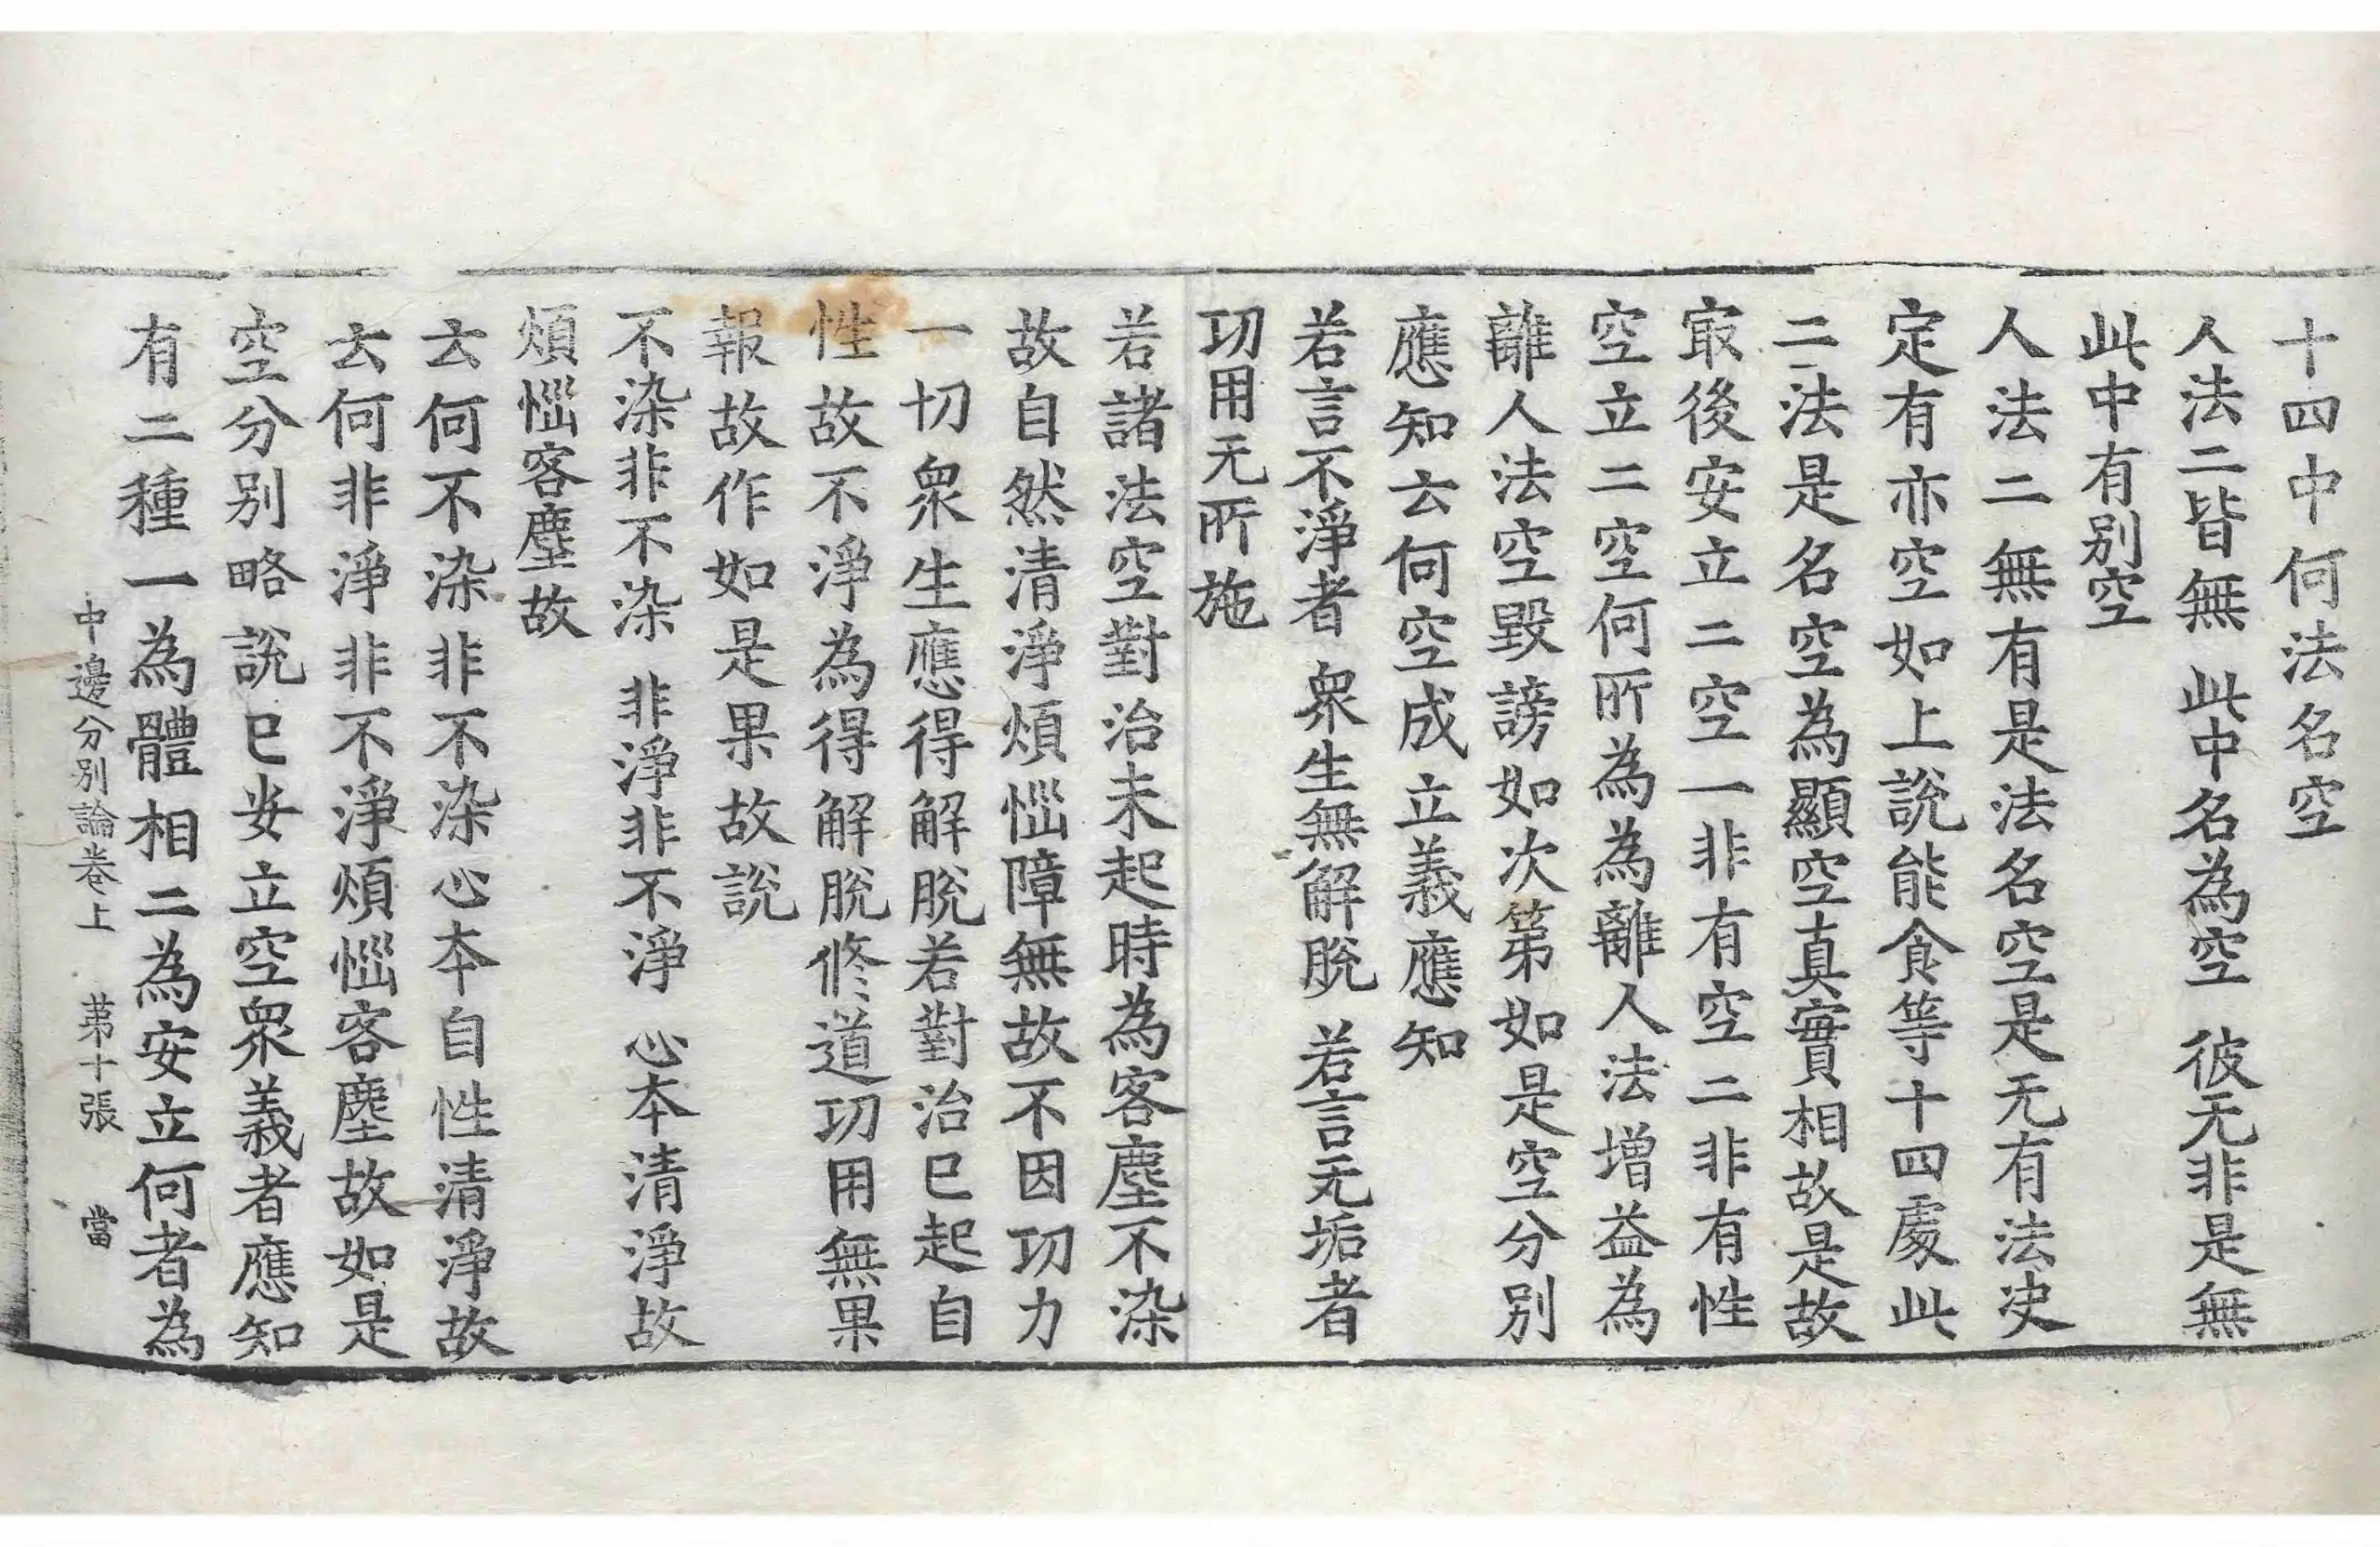 十四中何法名空
人法二皆無　此中名為空　彼无非是無
此中有別空
人法二無有是法名空是无有法决
定有亦空如上說能食等十四處此
二法是名空為顯空真實相故是故
㝡後安立二空一非有空二非有性
空立二空何所為為離人法增益為
離人法空毀謗如次第如是空分別
應知云何空成立義應知
若言不淨者　衆生無解脫　若言无垢者
功用无所施
若諸法空對治未起時為客塵不染
故自然清淨煩惱障無故不因功力
一切衆生應得解脫若對治已起自
性故不淨為得解脫修道功用無果
報故作如是果故說
不染非不染　非淨非不淨　心本清淨故
煩惱客塵故
云何不染非不染心本自性清淨故
云何非淨非不淨煩惱客塵故如是
空分別略說已安立空衆義者應知
有二種一為體相二為安立何者為
中邊分別論卷上　第十張　當